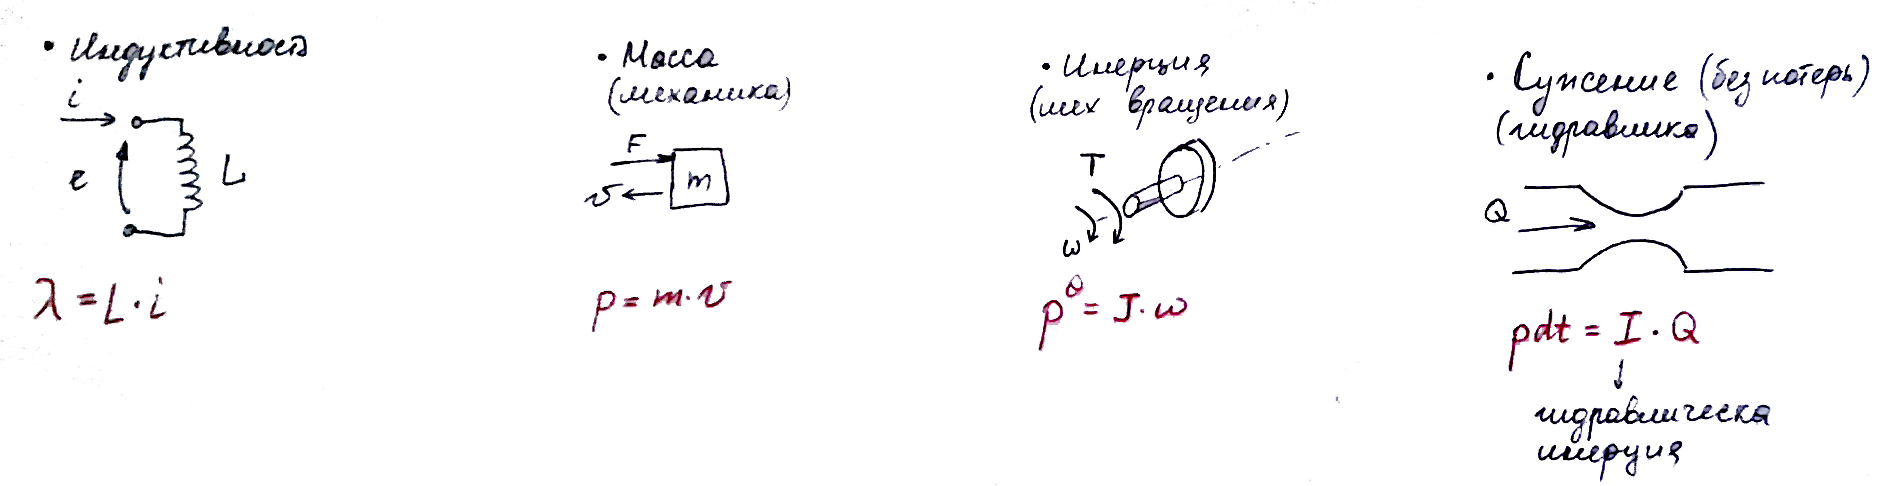 • Индуктивность
i
e
L
λ = L · i
• Масса
(механика)
F
m
v
p = m · v
• Инерция
(мех вращения)
T
ω
p^θ = J · ω
• Сужение (без потерь)
(гидравлика)
Q
pdt = I · Q
↓
гидравлическа
инерция